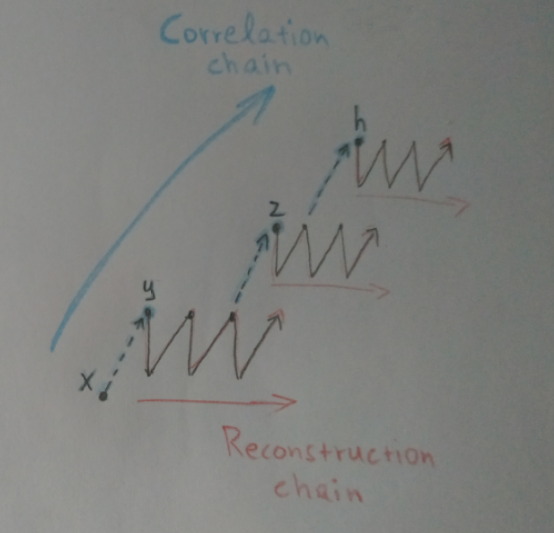 Correlation
chain
h
z
y
x
Reconstruction
chain